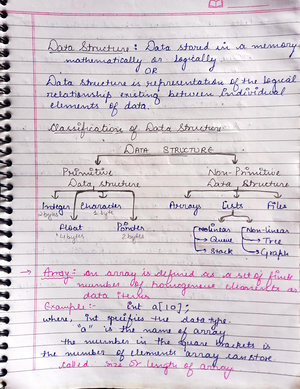 Data Structure : Data stored in a memory
mathematically or logically
OR
Data structure is representation of the logical
relationship existing between individual
elements of data.
Classification of Data Structure
DATA STRUCTURE
Primitive Data structure
Non-Primitive Data Structure
Integer Character Arrays Lists Files
2 bytes 1 byte
Float Pointer
4 bytes 2 bytes
linear Non-linear
Queue Tree
Stack Graph
→ Array : an array is defined as a set of finite
number of homogeneous elements or
data items
Example :- int a[10];
where, int specifies the data type
"a" is the name of array
the number in the square brackets is
the number of elements array can store
called size or length of array